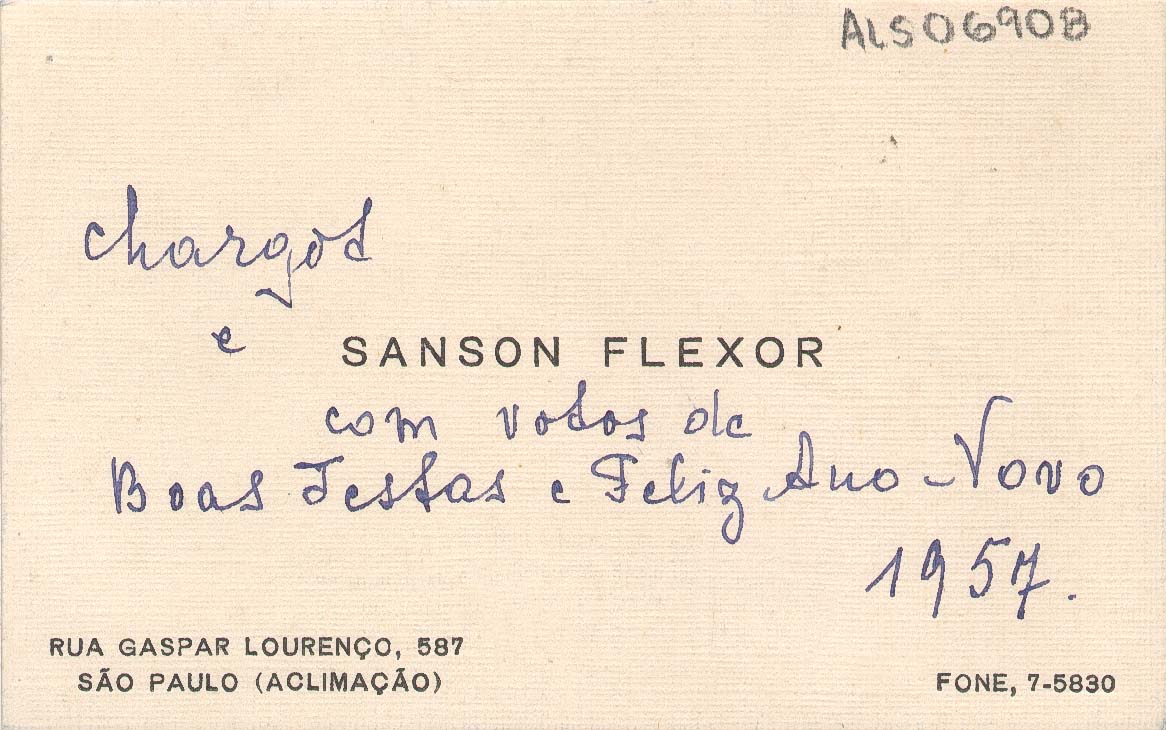 ALS06908
Margot
e
SANSON FLEXOR
com votos de
Boas Festas e Feliz Ano-Novo
1957.
RUA GASPAR LOURENÇO, 587
SÃO PAULO (ACLIMAÇÃO)
FONE, 7-5830